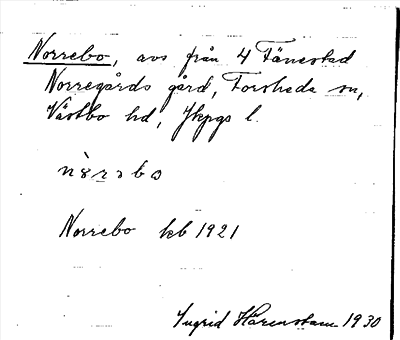 Norrebo, avs från 4 Tånestad
Norregårds gård, Forsheda sn,
Västbo hd, Jkpgs l.
nòrəbo
Norrebo kb 1921
Ingrid Härenstam 1930